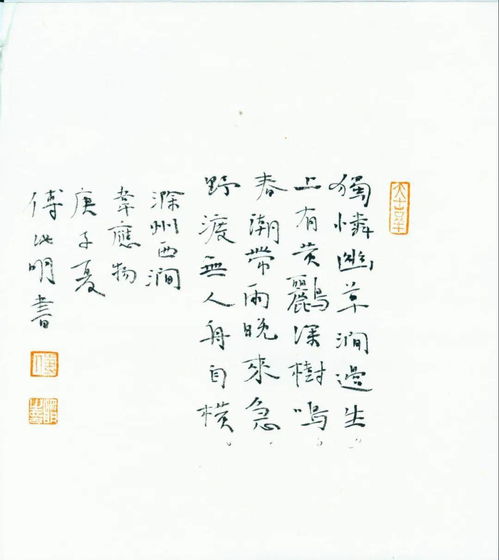 獨憐幽草澗邊生
上有黄鸝深樹鳴
春潮帶雨晚來急
野渡無人舟自橫
滁州西澗
韋應物
庚子夏
傅明書